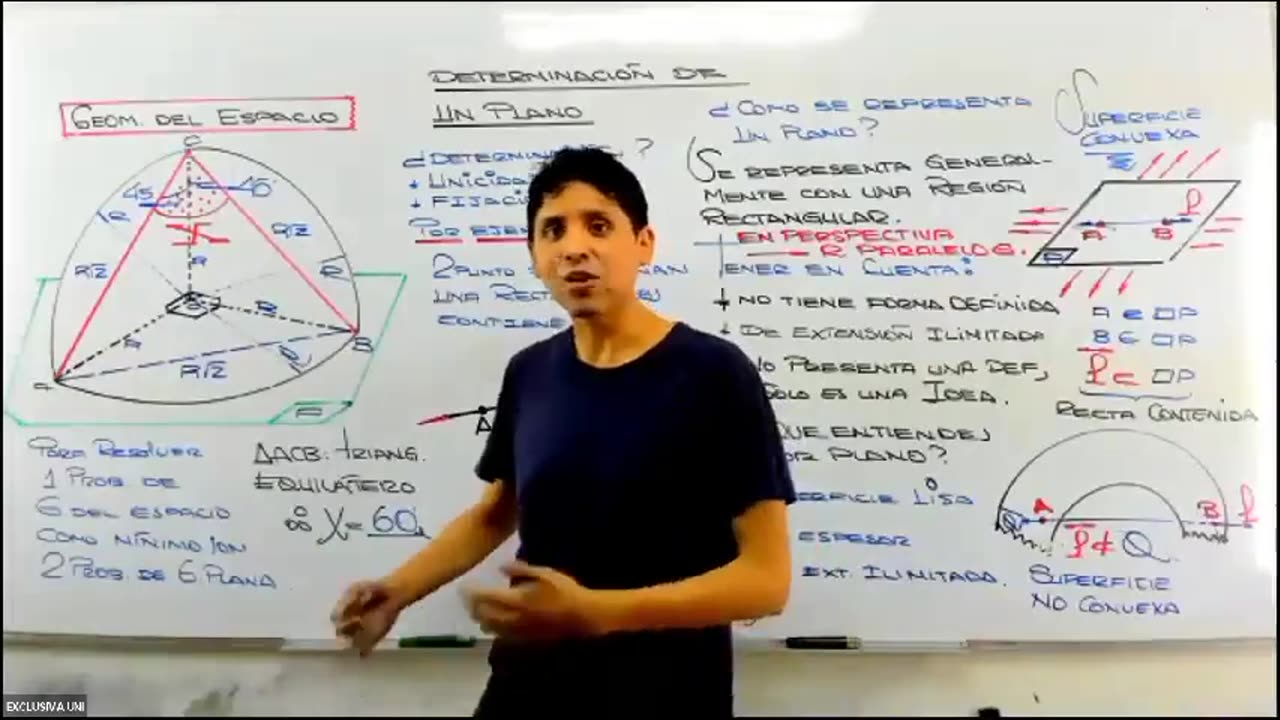 GEOM. DEL ESPACIO
C
45
45
R
R√2
R√2
R
R
R
R
A
B
R√2
P
PARA RESOLVER
1 PROB. DE
G DEL ESPACIO
COMO MÍNIMO SON
2 PROB. DE G PLANA
ΔACB: TRIANG.
EQUILÁTERO
∴ X = 60
DETERMINACIÓN DE
UN PLANO
¿DETERMINAR ?
UNICIDA
FIJACI
POR EJEM
2 PUNTO
UNA RECT
CONTIENE
A
¿COMO SE REPRESENTA
UN PLANO?
SE REPRESENTA GENERAL-
MENTE CON UNA REGIÓN
RECTANGULAR.
EN PERSPECTIVA
R PARALELOG.
TENER EN CUENTA:
NO TIENE FORMA DEFINIDA
DE EXTENSIÓN ILIMITADA
NO PRESENTA UNA DEF,
SOLO ES UNA IDEA.
QUE ENTIENDES
POR PLANO?
ERFICIE LISA
ESPESOR
EXT. ILIMITADA.
SUPERFICIE
CONVEXA
A B ℓ
P
A ∈ ▱P
B ∈ ▱P
ℓ ⊂ ▱P
RECTA CONTENIDA
Q A B ℓ
ℓ ⊄ Q
SUPERFICIE
NO CONVEXA
EXCLUSIVA UNI